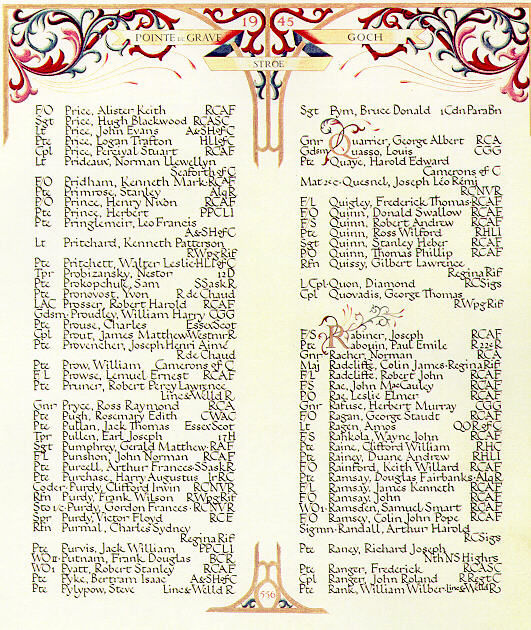 19 45
POINTE DE GRAVE
GOCH
STROE
F/O Price, Alister Keith RCAF
Sgt Price, Hugh Blackwood RCASC
Lt Price, John Evans A&SHofC
Pte Price, Logan Trafton HLIofC
Cpl Price, Percival Stuart RCAF
Lt Prideaux, Norman Llewellyn
Seaforth of C
F/O Pridham, Kenneth Mark RCAF
Pte Primrose, Stanley AlqR
P/O Prince, Henry Nixon RCAF
Pte Prince, Herbert PPCLI
Pte Pringlemeir, Leo Francis
A&SHofC
Lt Pritchard, Kenneth Patterson
RWpgRif
Pte Pritchett, Walter Leslie HLIofC
Tpr Probizansky, Nestor 12D
Pte Prokopchuk, Sam SSaskR
Pte Pronovost, Yvon R de Chaud
LAC Prosser, Robert Harold RCAF
Gdsm Proudley, William Harry CGG
Pte Prouse, Charles EssexScot
Cpl Prout, James Matthew WestmrR
Pte Provencher, Joseph Henri Aimé
R de Chaud
Pte Prow, William Camerons of C
F/L Prowse, Lemuel Ernest RCAF
Pte Pruner, Robert Percy Lawrence
Linc&WelldR
Gnr Pryce, Ross Raymond RCA
Pte Pugh, Rosemary Edith CWAC
Pte Pullan, Jack Thomas EssexScot
Tpr Pullen, Earl Joseph 17H
Sgt Pumphrey, Gerald Matthew RAF
F/L Punshon, John Norman RCAF
Pte Purcell, Arthur Frances SSaskR
Pte Purchase, Harry Augustus IrRC
Coder Purdy, Clifford Irwin RCNVR
Rfn Purdy, Frank Wilson RWpgRif
Sto1/c Purdy, Gordon Frances RCNVR
Spr Purdy, Victor Floyd RCE
Rfn Purmal, Charles Sydney
ReginaRif
Pte Purvis, Jack William PPCLI
WOII Putnam, Frank Douglas BCR
WO1 Pyatt, Robert Stanley RCAF
Pte Pyke, Bertram Isaac A&SHofC
Pte Pylypow, Steve Linc&WelldR
Sgt Pym, Bruce Donald 1CdnParaBn
Gnr Quarrier, George Albert RCA
Gdsm Quasso, Louis CGG
Pte Quaye, Harold Edward
Camerons of C
Mat2eC Quesnel, Joseph Léo Rémi
RCNVR
F/L Quigley, Frederick Thomas RCAF
F/O Quinn, Donald Swallow RCAF
F/S Quinn, Robert Andrew RCAF
Pte Quinn, Ross Wilford RHLI
Sgt Quinn, Stanley Heber RCAF
P/O Quinn, Thomas Phillip RCAF
Rfn Quissy, Gilbert Lawrence
ReginaRif
L/Cpl Quon, Diamond RCSigs
Cpl Quovadis, George Thomas
RWpgRif
F/S Rabiner, Joseph RCAF
Pte Rabouin, Paul Emile R22eR
Gnr Racher, Norman RCA
Maj Radcliffe, Colin James ReginaRif
F/L Radcliffe, Robert John RCAF
F/S Rae, John MacCauley RCAF
P/O Rae, Leslie Elmer RCAF
Gnr Rafuse, Herbert Murray CGG
F/O Ragan, George Staudt RCAF
Lt Ragen, Amos QORofC
F/S Rahkola, Wayne John RCAF
Pte Raine, Clifford William RHC
Pte Rainey, Duane Andrew RHLI
F/O Rainford, Keith Willard RCAF
Pte Ramsay, Douglas Fairbanks AlqR
F/L Ramsay, James Kenneth RCAF
F/O Ramsay, John RCAF
WO1 Ramsden, Samuel Smart RCAF
F/O Ramsey, Colin John Pope RCAF
Sigmn Randall, Arthur Harold
RCSigs
Pte Raney, Richard Joseph
NthNSHighrs
Pte Ranger, Frederick RCASC
Cpl Ranger, John Roland RRegtC
Pte Rank, William Wilber Linc&WelldR
556